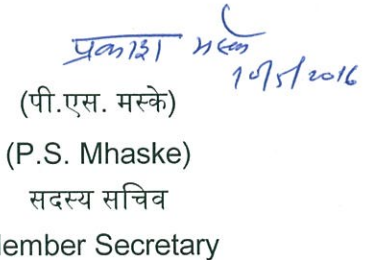 प्रकाश मस्के
10/5/2016
(पी.एस. मस्के)
(P.S. Mhaske)
सदस्य सचिव
Member Secretary